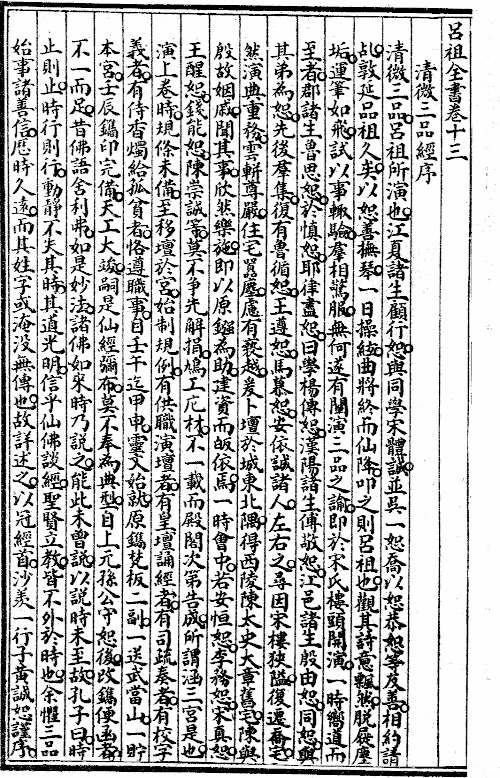 呂祖全書卷十三
清微三品經序
清微三品呂祖所演也江夏諸生顧行恕與同學宋體誠並吳一恕喬以恕恭恕等友善相約請
乩敦延品祖久矣以恕善撫琴一日操絃曲將終而仙降叩之則呂祖也觀其詩意飄然脫屣塵
垢運筆如飛試以事輒驗羣相驚服無何遂有闡演三品之諭即於宋氏樓頭開演一時嚮道而
至者郡諸生魯思恕於慎恕耶律盡恕曰學楊傳恕漢陽諸生傅敬恕江邑諸生殷由恕同恕與
其弟為恕先後羣集復有魯循恕王遵恕馬慕恕安依誠諸人左右之尋因宋樓狹隘復還喬宅
然演典重務雲軿尊嚴住宅囂塵慮有褻越爰卜壇於城東北隅得西陵陳太史大章舊宅陳與
殷故姻戚聞其事欣然樂施即以原鏹為助建資而皈依焉一時會中若安恒恕李務恕宋真恕
王醒恕錢能恕陳崇誠等莫不争先解捐鳩工庀材不一載而殿閣次第告成所謂涵三宮是也
演上卷時規條未備至移壇於宮始制規例有供職演壇者有皇壇誦經者有司疏奏者有校字
義者有侍香燭給孤貧者恪遵職事自壬午迄甲申靈文始就原鐫梵板二副一送武當山一貯
本宮壬辰鐫印完備天工大竣嗣是仙經彌布莫不奉為典型自上元孫公守恕後改鐫便函者
不一而足昔佛語舍利弗如是妙法諸佛如來時乃說之能此未曾說以說時未至故孔子曰時
止則止時行則行動靜不失其時其道光明信乎仙佛談經聖賢立教皆不外於時也余懼三品
始事諸善信歷時久遠而其姓字或淹沒無傳也故詳述之以冠經首沙羡一行子黃誠恕謹序